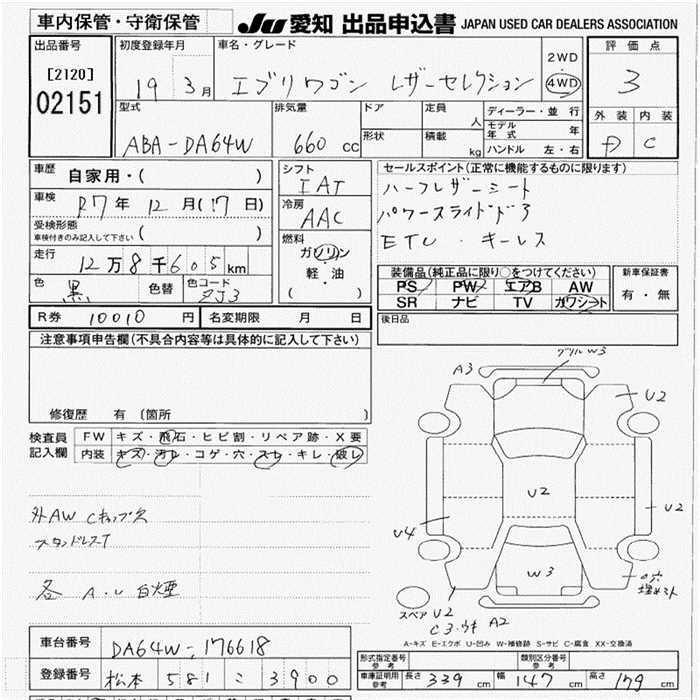 車内保管・守衛保管
JU 愛知 出品申込書 JAPAN USED CAR DEALERS ASSOCIATION
出品番号 初度登録年月 車名・グレード 評価点
[2120] 19 3月 エブリワゴン レザーセレクション 2WD・4WD 3
02151
型式 排気量 ドア 定員 人 ディーラー・並行 外装 内装
ABA-DA64W 660 cc 形状 積載 kg モデル年式 年 D C
ハンドル 左・右
車歴 自家用・( ) シフト IAT セールスポイント(正常に機能するものに限ります)
車検 R7年 12月(17日) 冷房 AAC ハーフレザーシート
受検形態 車検付きのみ記入して下さい ( ) パワースライドドア
走行 12万8千605km 燃料 ガソリン・軽・油 ( ) ETC・キーレス
色 黒 色替 色コード ZJ3 装備品(純正品に限り○をつけてください) 新車保証書
PS PW エアB AW 有・無
SR ナビ TV カワシート
R券 10010円 名変期限 月 日 後日品
注意事項申告欄(不具合内容等は具体的に記入して下さい)
修復歴 有 (箇所
検査員記入欄 FW キズ・飛石・ヒビ割・リペア跡・X要
内装 キズ・汚レ・コゲ・穴・スレ・キレ・破レ
グリルW3
A3
U2
U2
U2
U4
W3
外AW Cキャップ欠
スタンドレスT
各 A.U 白煙
スペア U2
C3.ウキ A2
A-キズ E-エクボ U-凹み W-補修跡 S-サビ C-腐食 XX-交換済
車台番号 DA64W-176618
登録番号 松本 581 こ 3900
形式指定番号 参考 類別区分番号 参考
車庫証明用 参考 長さ 339cm 幅 147cm 高さ 179cm